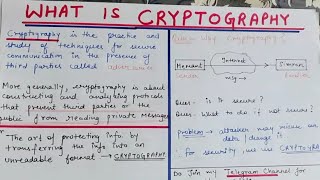 WHAT IS CRYPTOGRAPHY
Cryptography is the practice and
study of techniques for secure
communication in the presence of
third parties called
More generally, cryptography is about
constructing and analyzing protocols
that prevent third parties or the
public from reading private messages
The art of protecting info. by
transferring the info into an
unreadable format → CRYPTOGRAPHY
why Cryptography
Hemant
Internet
Simran
Sender
msg
Ques- is it secure?
Ques- What to do if not secure?
problem → attacker may misuse our
data / change it
for security, we use CRYPTOG
Do Join my Telegram Channel for